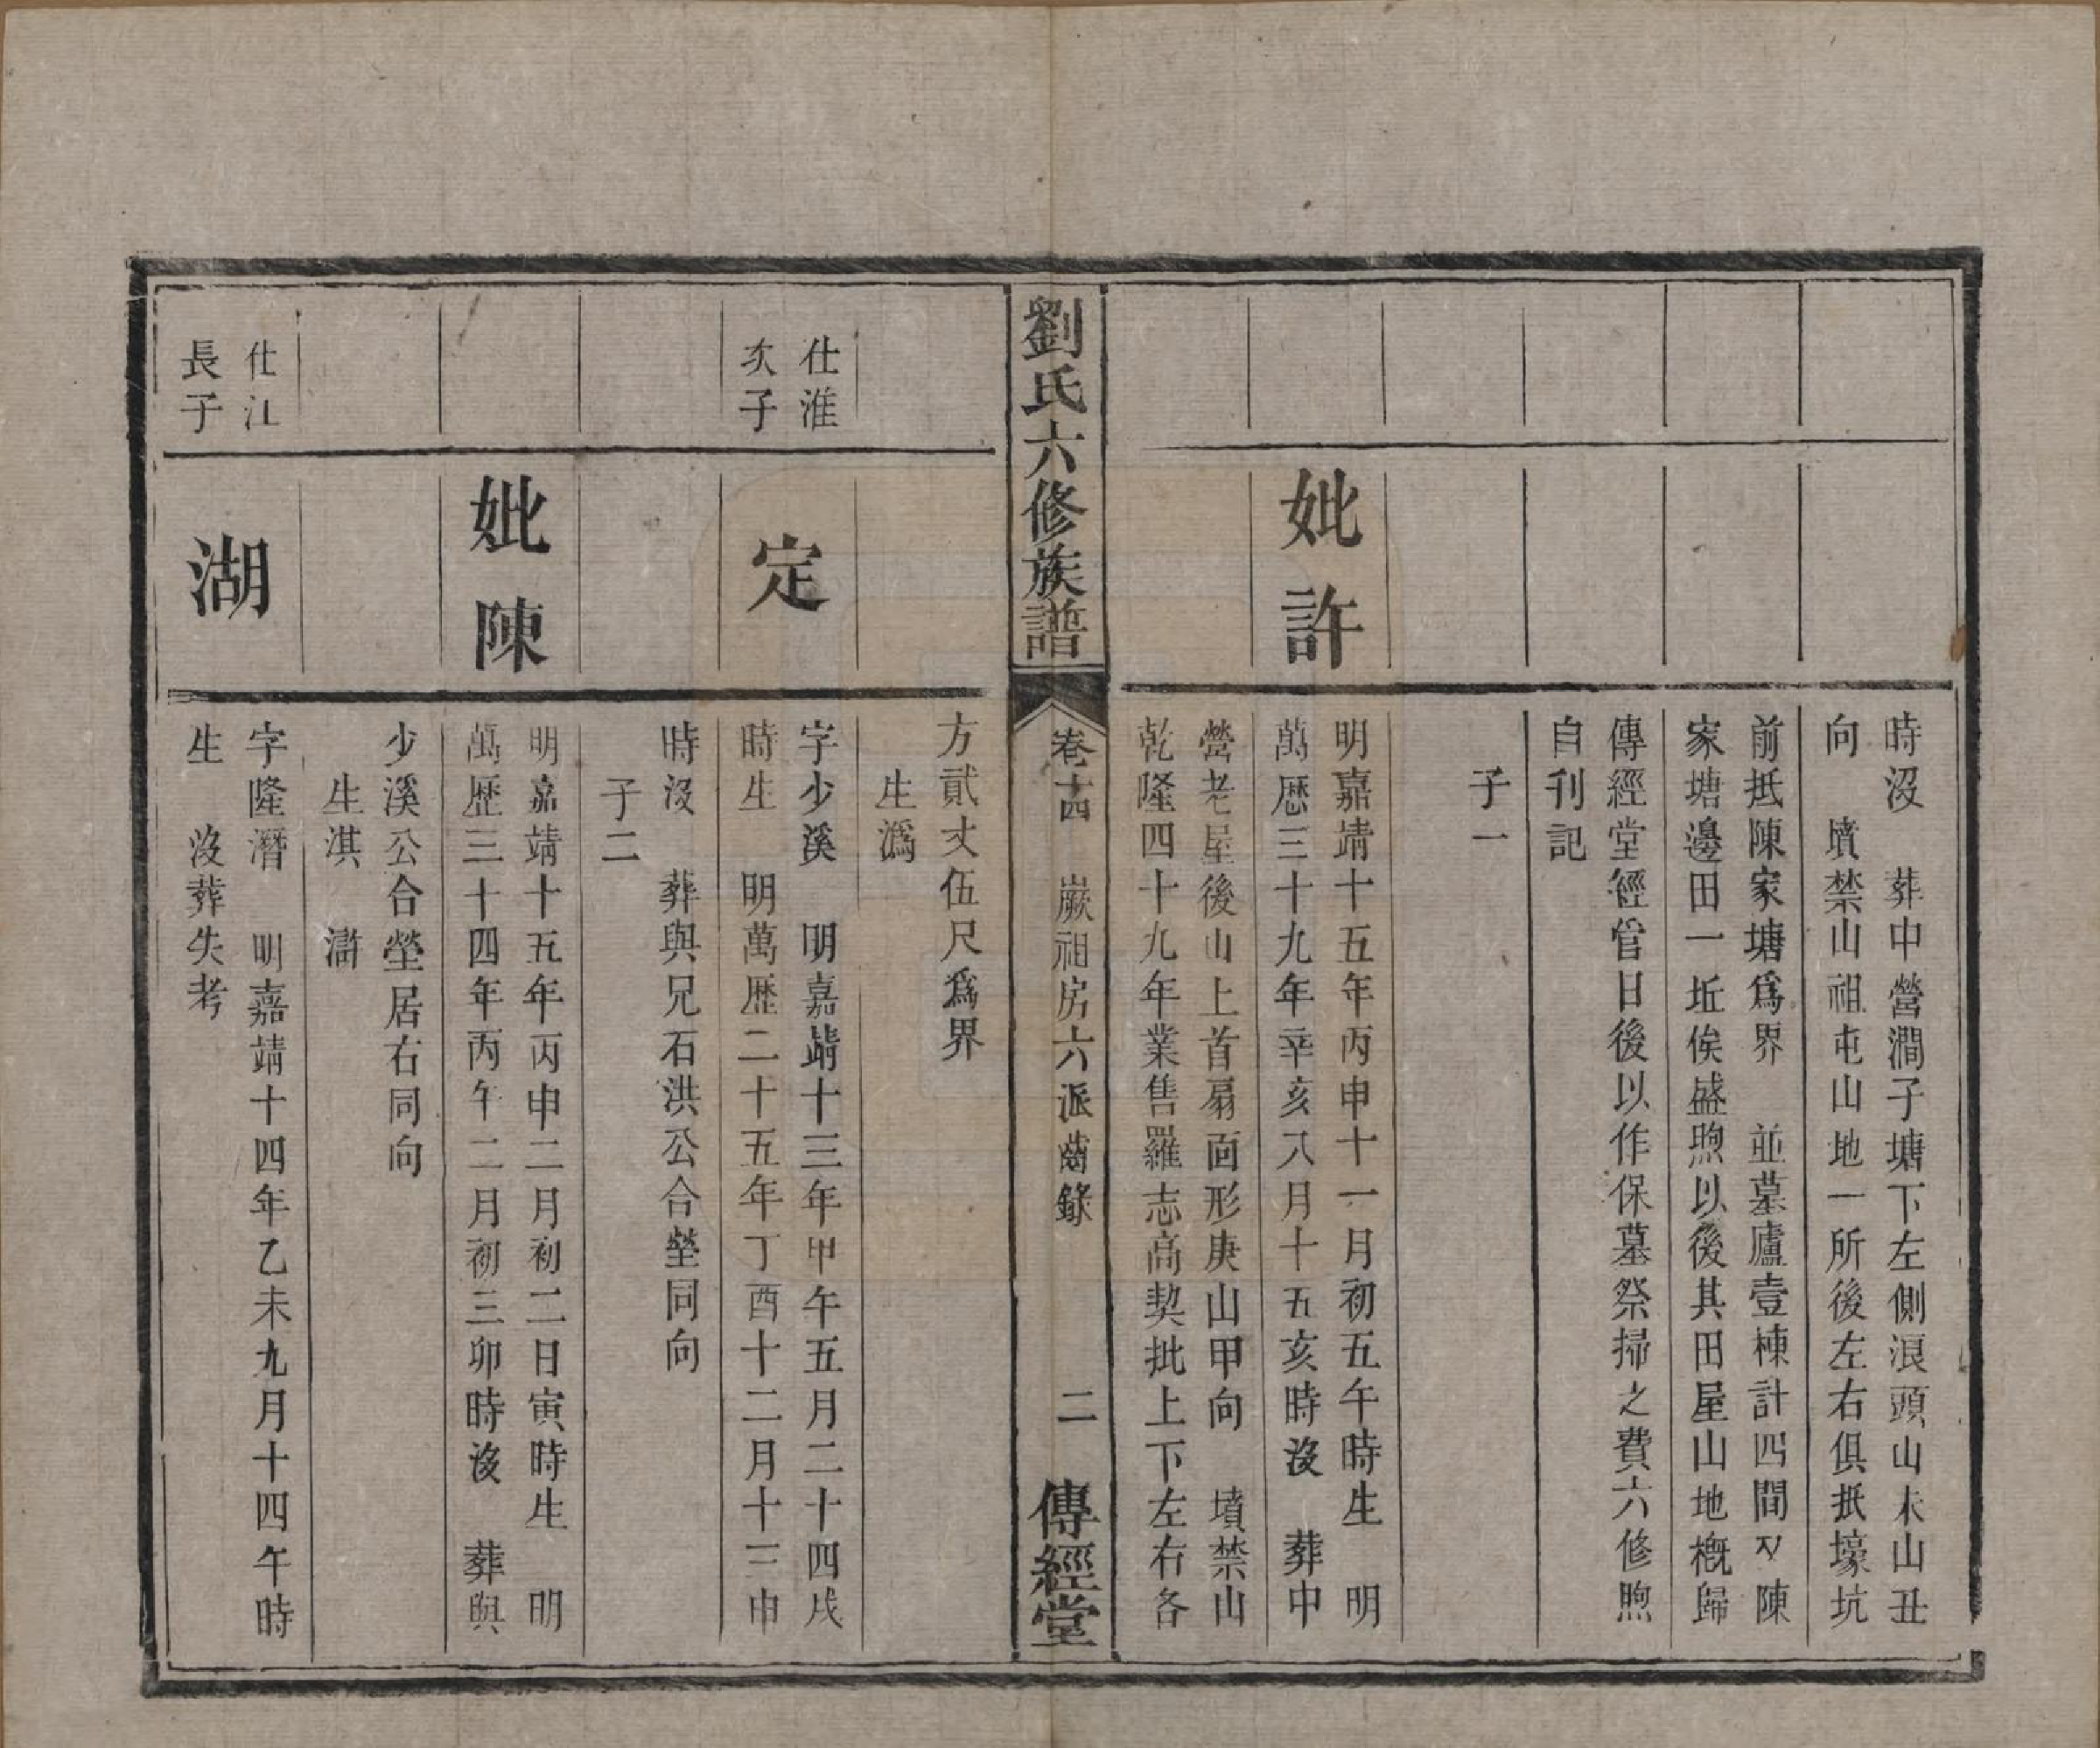 時沒　葬中營澗子塘下左側浪頭山未山丑
向　墳禁山祖屯山地一所後左右俱抵壕坑
前抵陳家塘爲界　並墓廬壹棟計四間又陳
家塘邊田一坵俟盛煦以後其田屋山地概歸
傳經堂經管日後以作保墓祭掃之費六修煦
自刊記
子一
妣許
明嘉靖十五年丙申十一月初五午時生　明
萬歷三十九年辛亥八月十五亥時沒　葬中
營老屋後山上首扇面形庚山甲向　墳禁山
乾隆四十九年業售羅志高契批上下左右各
劉氏六修族譜
卷十四　嚴祖房六派齒錄　二
傳經堂
方貳丈伍尺爲界
生潙
仕淮
次子
定
字少溪　明嘉靖十三年甲午五月二十四戌
時生　明萬歷二十五年丁酉十二月十三申
時沒　葬與兄石洪公合塋同向
子二
妣陳
明嘉靖十五年丙申二月初二日寅時生　明
萬歷三十四年丙午二月初三卯時沒　葬與
少溪公合塋居右同向
生淇　澍
仕江
長子
湖
字隆潛　明嘉靖十四年乙未九月十四午時
生　沒葬失考